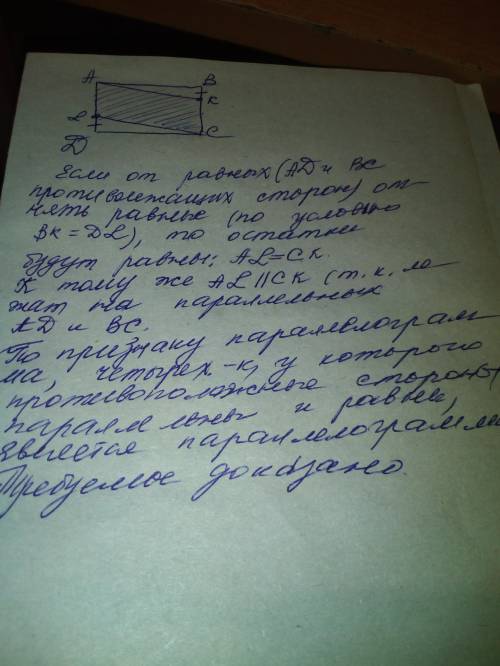 A B
K
L
D C
Если от равных (AD и BC
противолежащих сторон) от-
нять равные (по условию
BK = DL), то остатки
будут равны: AL = CK.
К тому же AL || CK (т. к. ле-
жат на параллельных
AD и BC.
По признаку параллелограм
ма, четырех-к, у которого
противоположные стороны
параллельны и равны,
является параллелограммом
Требуемое доказано.